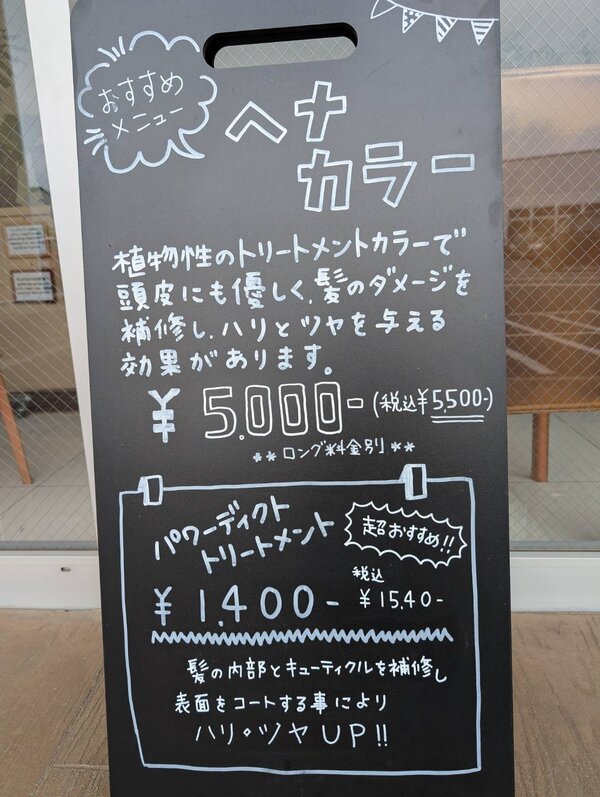 おすすめ
メニュー
ヘナ
カラー
植物性のトリートメントカラーで
頭皮にも優しく、髪のダメージを
補修し、ハリとツヤを与える
効果があります。
¥5.000- (税込¥5,500-)
** ロング料金別 **
パワーディクト
トリートメント
超おすすめ!!
¥1,400- 税込 ¥15,40-
髪の内部とキューティクルを補修し
表面をコートする事により
ハリ・ツヤUP!!